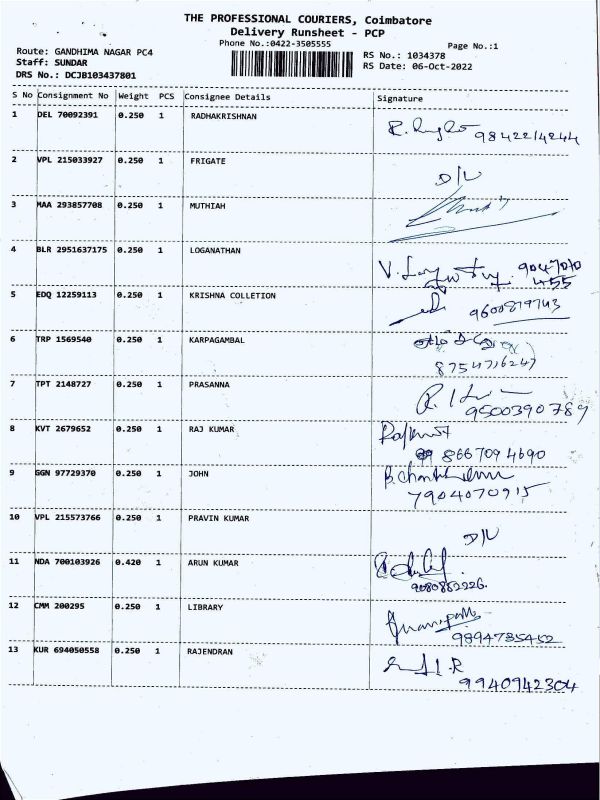 THE PROFESSIONAL COURIERS, Coimbatore
Delivery Runsheet - PCP
Phone No.:0422-3505555
Page No.:1
Route: GANDHIMA NAGAR PC4
Staff: SUNDAR
DRS No.: DCJB103437801
RS No.: 1034378
RS Date: 06-Oct-2022
S No Consignment No Weight PCS Consignee Details Signature
1 DEL 70092391 0.250 1 RADHAKRISHNAN
9842214244
2 VPL 215033927 0.250 1 FRIGATE
D/L
3 MAA 293857708 0.250 1 MUTHIAH
4 BLR 2951637175 0.250 1 LOGANATHAN
5 EDQ 12259113 0.250 1 KRISHNA COLLETION
9600879743
6 TRP 1569540 0.250 1 KARPAGAMBAL
8754716247
7 TPT 2148727 0.250 1 PRASANNA
9500390789
8 KVT 2679652 0.250 1 RAJ KUMAR
8667094690
9 GGN 97729370 0.250 1 JOHN
7904070915
10 VPL 215573766 0.250 1 PRAVIN KUMAR
D/L
11 NDA 700103926 0.420 1 ARUN KUMAR
9080862226.
12 CMM 200295 0.250 1 LIBRARY
9894785452
13 KUR 694050558 0.250 1 RAJENDRAN
9940942304